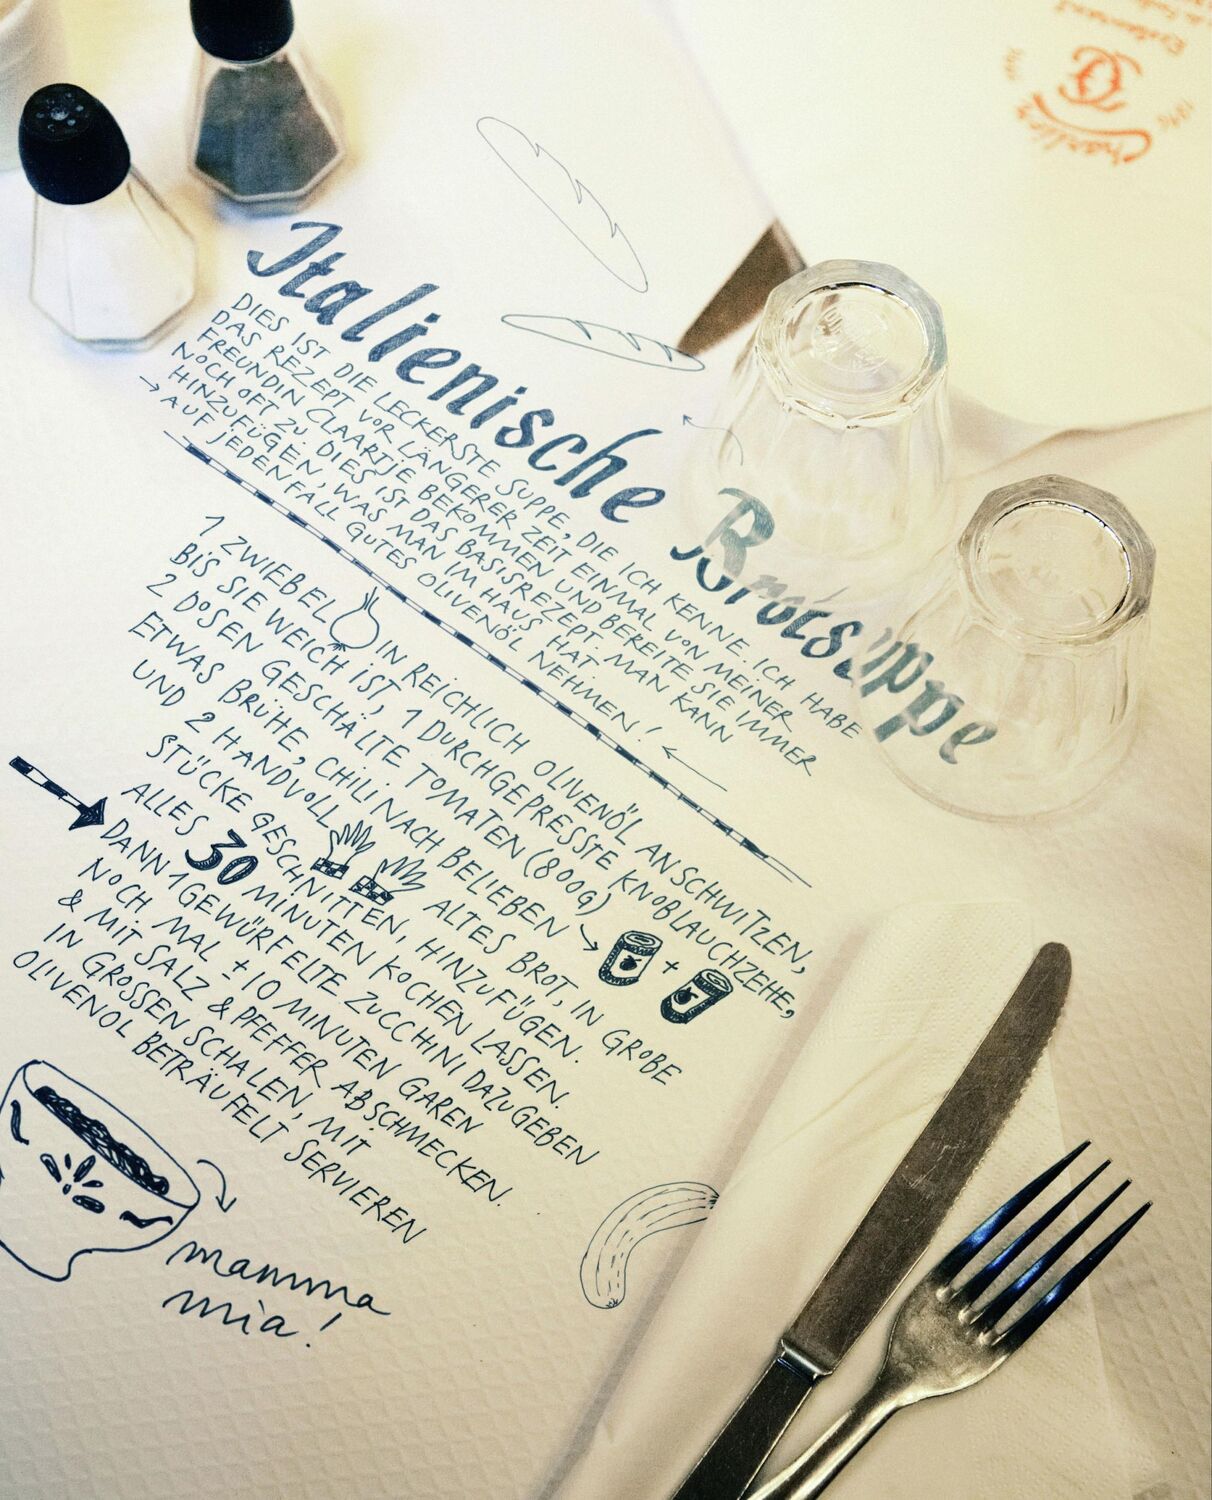 Italienische Brotsuppe
DIES IST DIE LECKERSTE SUPPE, DIE ICH KENNE. ICH HABE
DAS REZEPT VOR LÄNGERER ZEIT EINMAL VON MEINER
FREUNDIN CLAARTJE BEKOMMEN UND BEREITE SIE IMMER
NOCH OFT ZU. DIES IST DAS BASISREZEPT. MAN KANN
HINZUFÜGEN, WAS MAN IM HAUS HAT
→ AUF JEDENFALL GUTES OLIVENÖL NEHMEN! ←
1 ZWIEBEL IN REICHLICH OLIVENÖL ANSCHWITZEN,
BIS SIE WEICH IST, 1 DURCHGEPRESSTE KNOBLAUCHZEHE,
2 DOSEN GESCHÄLTE TOMATEN (800G)
ETWAS BRÜHE, CHILI NACH BELIEBEN → +
UND 2 HANDVOLL ALTES BROT, IN GROBE
STÜCKE GESCHNITTEN, HINZUFÜGEN.
ALLES 30 MINUTEN KOCHEN LASSEN.
DANN 1 GEWÜRFELTE ZUCCHINI DAZUGEBEN
NOCH MAL ± 10 MINUTEN GAREN
& MIT SALZ & PFEFFER ABSCHMECKEN.
IN GROSSEN SCHALEN, MIT
OLIVENÖL BETRÄUFELT SERVIEREN
mamma
mia!
Charlies
1996
Restaurant